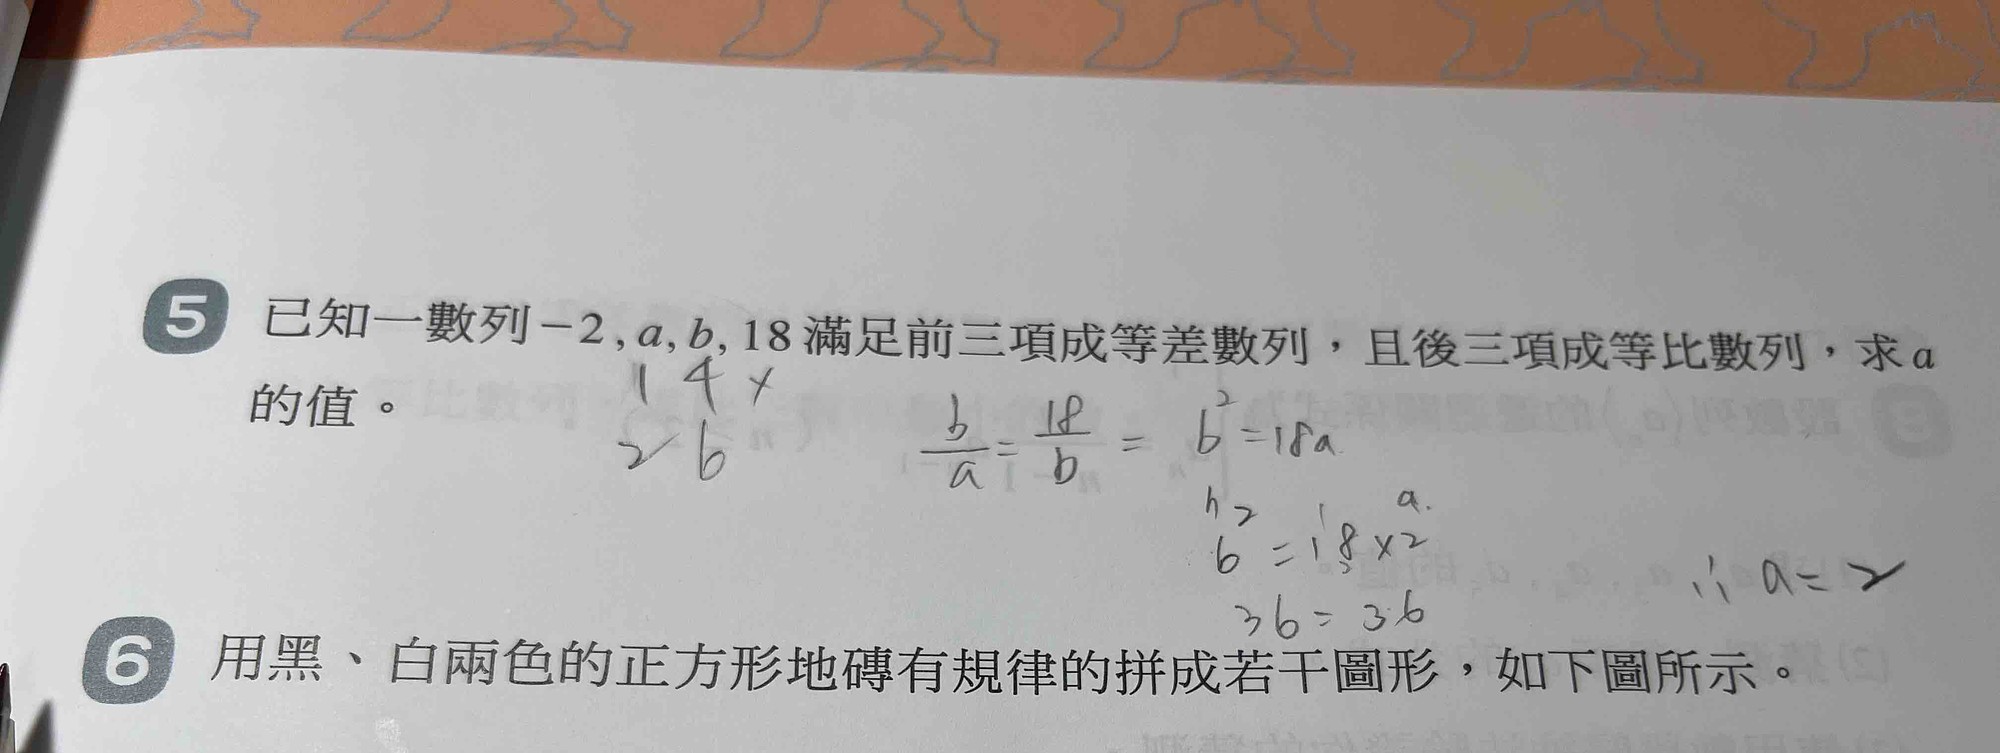 5 已知一數列－2, a, b, 18滿足前三項成等差數列，且後三項成等比數列，求a
的值。
1 4 ×
2 6
b/a = 18/b = b² = 18a
6² = 18×2
a.
36 = 36
∴ a = 2
6 用黑、白兩色的正方形地磚有規律的拼成若干圖形，如下圖所示。